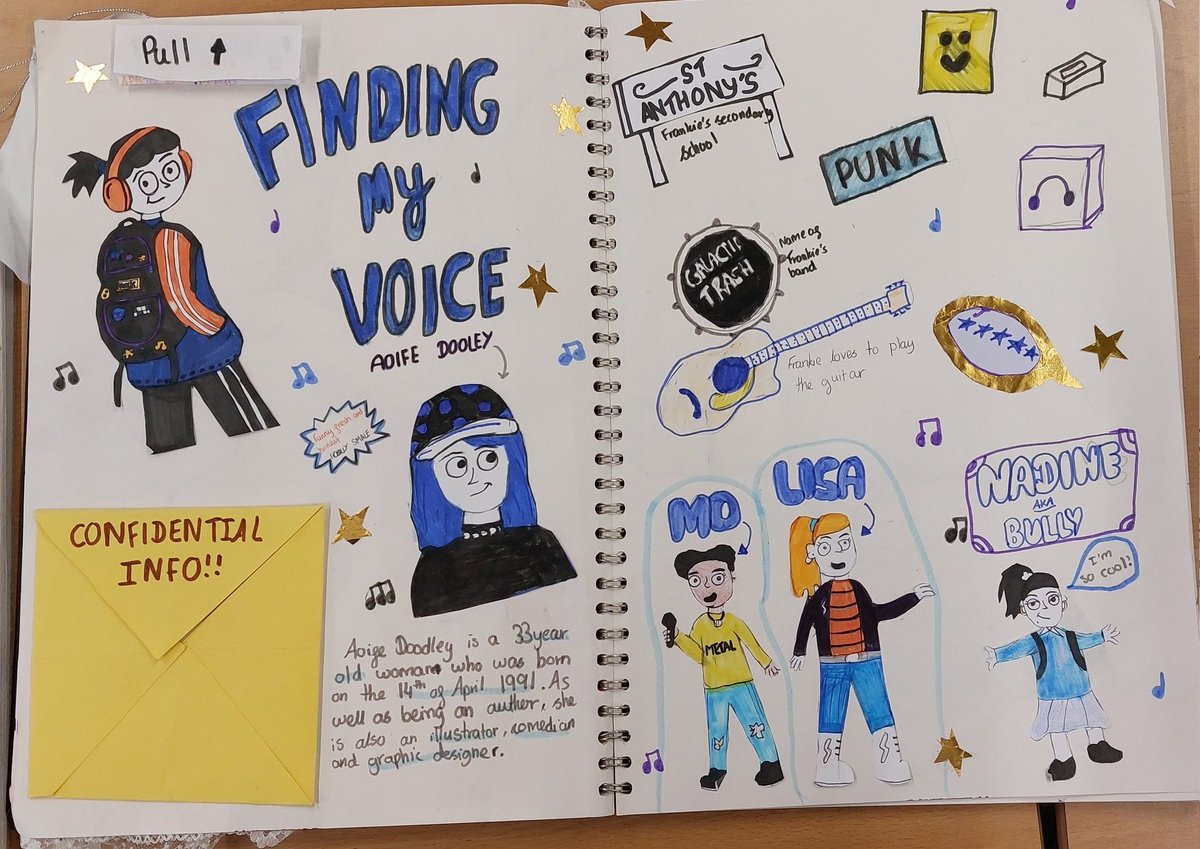 Pull ↑
FINDING
My
VOICE
AOIFE DOOLEY
Funny, fresh and
honest
HOLLY SMALE
CONFIDENTIAL
INFO!!
Aoife Doodley is a 33 year
old woman who was born
on the 14th of April 1991. As
well as being an auther, she
is also an illustrator, comedian
and graphic designer.
ST
ANTHONY'S
Frankie's secondary
school
PUNK
GALACTIC
TRASH
Name of
Frankie's
band
Frankie loves to play
the guitar
MO
METAL
LISA
NADINE
AKA
BULLY
I'm
so cool!